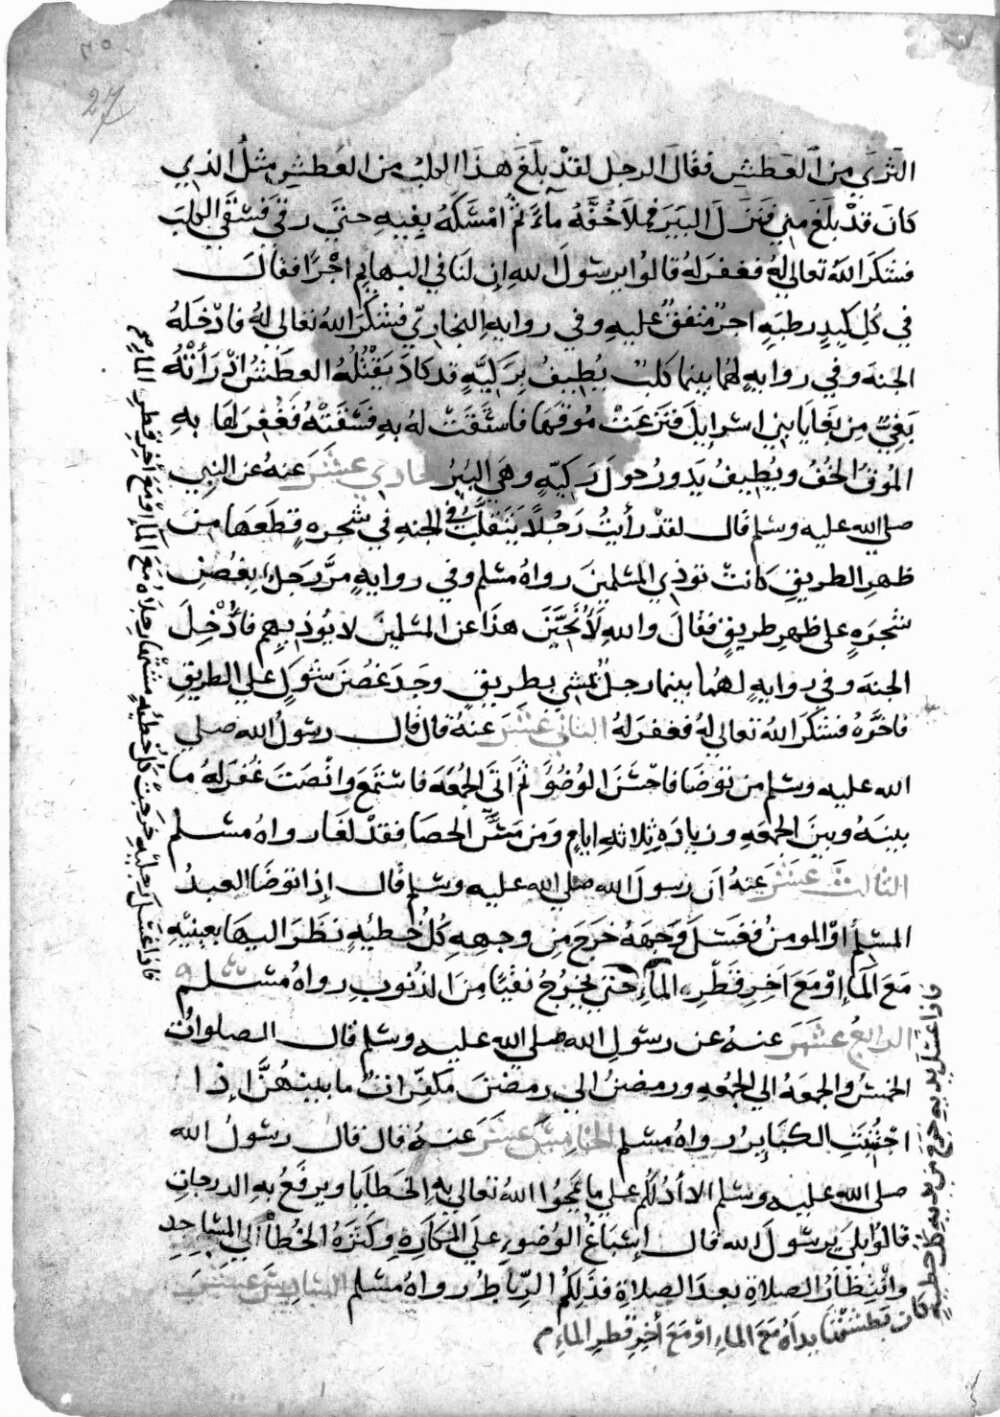 ٣٥
27
الثري من العطش فقال الرجل لقد بلغ هذا الكلب من العطش مثل الذي
كان قد بلغ مني فنزل البير فملا خفه ماء ثم امسكه بفيه حتى رقي فسقي الكلب
فشكر الله تعالى له فغفر له قالوا يرسول الله إن لنا في البهايم اجرا فقال
في كل كبد رطبة اجر متفق عليه وفي رواية البخاري فشكر الله تعالى له فادخله
الجنة وفي رواية لهما بينما كلب يطيف بركية قد كاد يقتله العطش اذ رأته
بغي من بغايا بني اسرايل فنزعت موقها فاستقت له به فسقته فغفر لها به
الموق الخف ويطيف يدور حول ركية وهي البير حادي عشر عنه عن النبي
صلى الله عليه وسلم قال لقد رأيت رجلا يتقلب في الجنة في شجرة قطعها من
ظهر الطريق كانت توذي المسلمين رواه مسلم وفي رواية مر رجل بغصن
شجرة على ظهر طريق فقال والله لأنحين هذا عن المسلمين لا يوذيهم فأدخل
الجنة وفي رواية لهما بينما رجل يمشي بطريق وجد غصن شوك علي الطريق
فاخره فشكر الله تعالى له فغفر له الثاني عشر عنه قال قال رسول الله صلى
الله عليه وسلم من توضا فاحسن الوضو ثم اتى الجمعة فاستمع وانصت غفر له ما
بينه وبين الجمعة وزيادة ثلاثة ايام ومن مس الحصا فقد لغا رواه مسلم
الثالث عشر عنه ان رسول الله صلى الله عليه وسلم قال إذا توضا العبد
المسلم او المومن فغسل وجهه خرج من وجهه كل خطية نظر اليها بعينيه
مع الماء او مع اخر قطر الماء حتى يخرج نقيا من الذنوب رواه مسلم
الرابع عشر عنه عن رسول الله صلى الله عليه وسلم قال الصلوات
الخمس والجمعة الي الجمعة ورمضن الي رمضن مكفرات ما بينهن إذا
اجتنبت الكباير رواه مسلم الخامس عشر عنه قال قال رسول الله
صلى الله عليه وسلم الا أدلكم علي ما يمحوا الله تعالى به الخطايا ويرفع به الدرجات
قالوا بلى يرسول الله قال إسباغ الوضو على المكاره وكثرة الخطأ الى المساجد
وانتظار الصلاة بعد الصلاة فذلكم الرباط رواه مسلم السادس عشر
فاذا غسل يديه خرج من يديه كل خطية
كان بطشتها يداه مع الماء او مع أخر قطر الماء م
فاذا غسل رجليه خرجت كل خطية مشتها رجلاه مع الماء او مع أخر قطر الماء م